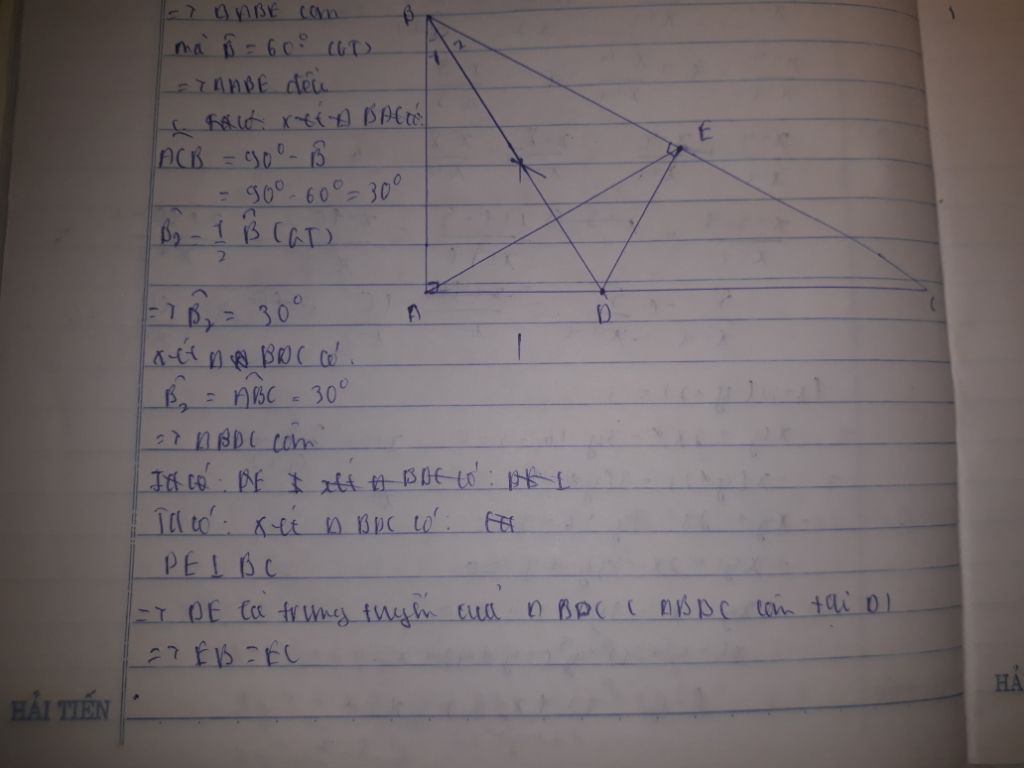 => ΔABE cân
mà B̂ = 60° (GT)
=> ΔABE đều
c, Ta có: xét Δ BAC có:
ACB = 90° - B̂
= 90° - 60° = 30°
B̂₂ = 1/2 B̂ (GT)
=> B̂₂ = 30°
xét Δ BDC có:
B̂₂ = ABC = 30°
=> Δ BDC cân
Ta có: DE xét Δ BDE có:
Ta có: xét Δ BDC có:
DE ⊥ BC
=> DE là trung tuyến của Δ BDC ( ΔBDC cân tại D)
=> EB = EC
B
1 2
E
A
D
C
HẢI TIẾN
HẢ